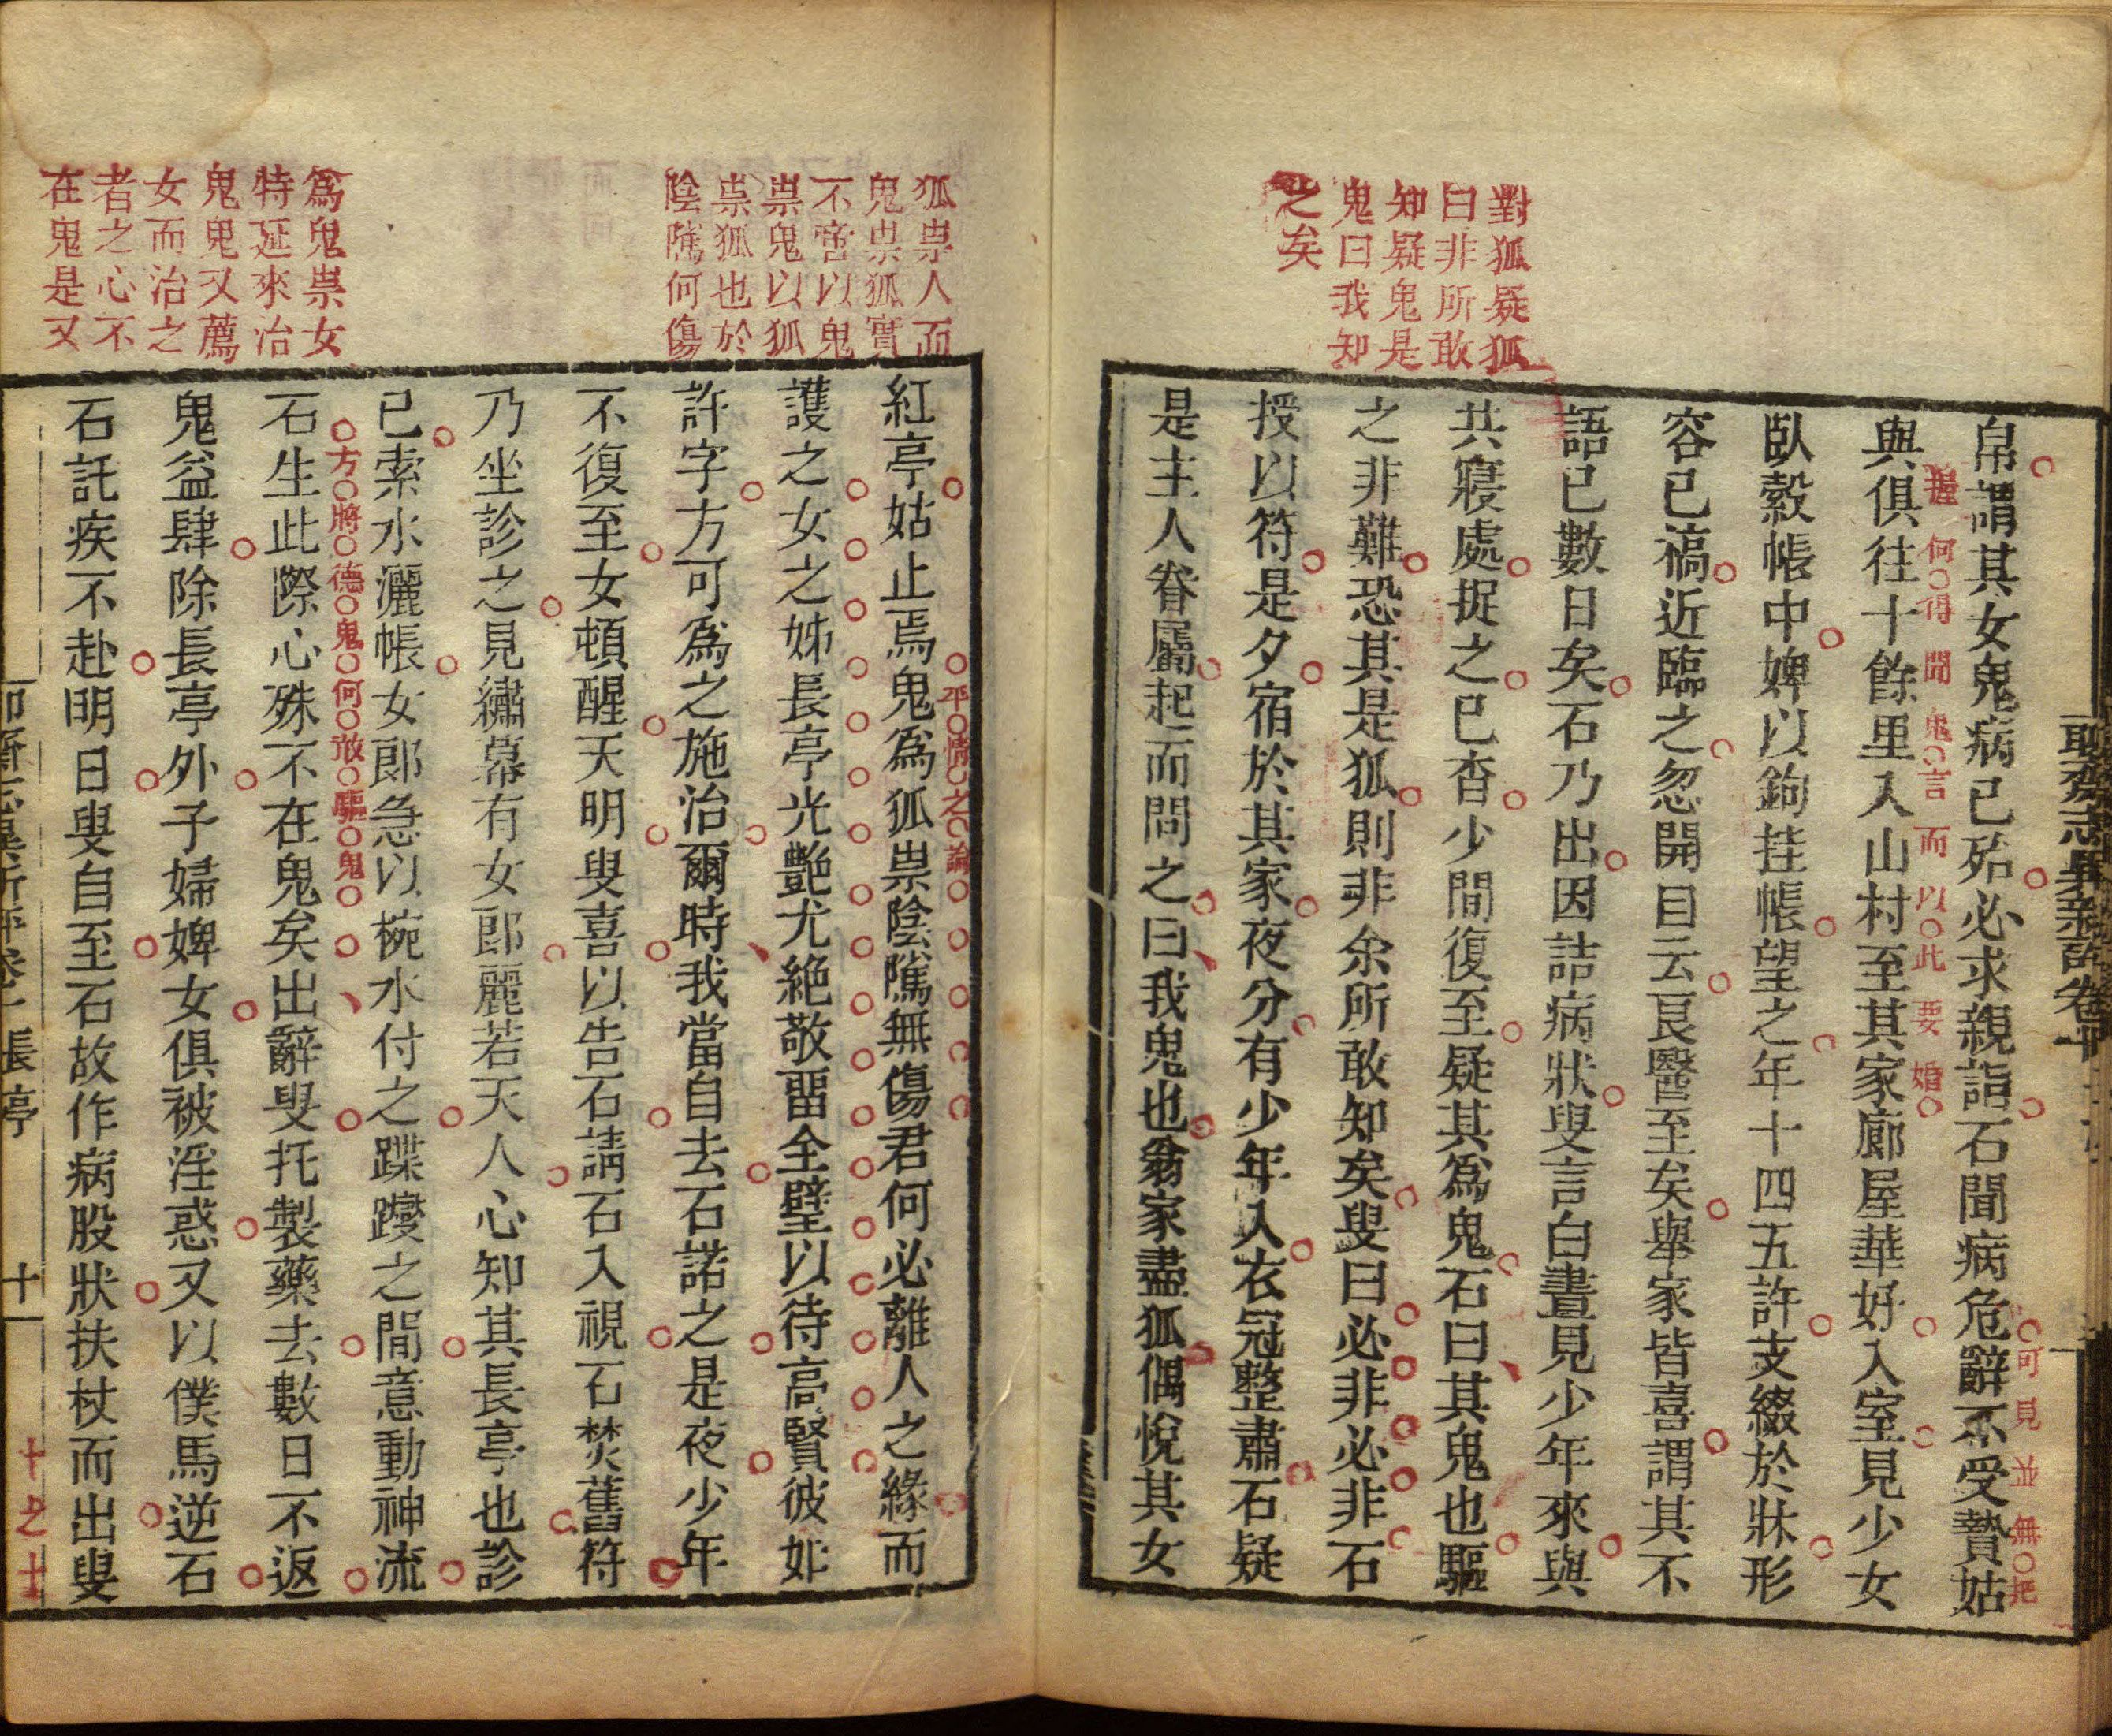 對狐疑狐
曰非所敢
知疑鬼是
鬼曰我知
之矣
帛謂其女鬼病已殆必求親詣石聞病危辭不受贄姑
可見並無把
握何得聞鬼言而以此要婚
與俱往十餘里入山村至其家廊屋華好入室見少女
臥縠帳中婢以鉤挂帳望之年十四五許支綴於牀形
容已槁近臨之忽開目云良醫至矣舉家皆喜謂其不
語已數日矣石乃出因詰病狀叟言白晝見少年來與
共寢處捉之已杳少間復至疑其為鬼石曰其鬼也驅
之非難恐其是狐則非余所敢知矣叟曰必非必非石
授以符是夕宿於其家夜分有少年入衣冠整肅石疑
是主人眷屬起而問之曰我鬼也翁家盡狐偶悅其女
狐祟人而
鬼祟狐實
不啻以鬼
祟鬼以狐
祟狐也於
陰騭何傷
為鬼祟女
特延來治
鬼鬼又薦
女而治之
者之心不
在鬼是又
平情之論
紅亭姑止焉鬼為狐祟陰騭無傷君何必離人之緣而
護之女之姊長亭光艷尤絕敬留全璧以待高賢彼如
許字方可為之施治爾時我當自去石諾之是夜少年
不復至女頓醒天明叟喜以告石請石入視石焚舊符
乃坐診之見繡幕有女郎麗若天人心知其長亭也診
已索水灑帳女郎急以椀水付之蹀躞之間意動神流
方將德鬼何敢驅鬼
石生此際心殊不在鬼矣出辭叟托製藥去數日不返
鬼益肆除長亭外子婦婢女俱被淫惑又以僕馬逆石
石託疾不赴明日叟自至石故作病股狀扶杖而出叟
長亭
十一
十之十